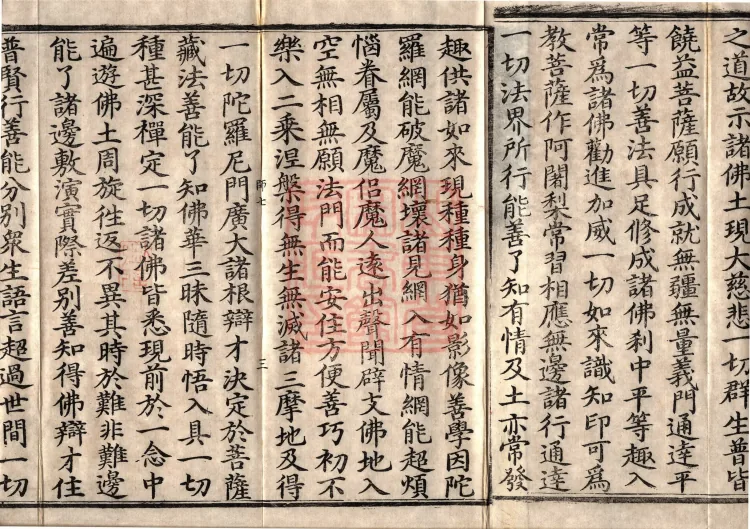 之道故示諸佛土現大慈悲一切群生普皆
饒益菩薩願行成就無疆無量義門通達平
等一切善法具足修成諸佛利中平等趣入
常爲諸佛勸進加威一切如來識知印可爲
教菩薩作阿闍梨常習相應無邊諸行通達
一切法界所行能善了知有情及土亦常發
趣供諸如來現種種身猶如影像善學因陀
羅網能破魔網壞諸見網入有情網能超煩
惱眷屬及魔侣魔人遠出聲聞辟支佛地入
空無相無願法門而能安住方便善巧初不
樂入二乘涅槃得無生無滅諸三摩地及得
師七 三
一切陀羅尼門廣大諸根辯才決定於菩薩
藏法善能了知佛華三昧隨時悟入具一切
種甚深禪定一切諸佛皆悉現前於一念中
遍遊佛土周旋往返不異其時於難非難邊
能了諸邊敷演實際差别善知得佛辯才住
普賢行善能分别衆生語言超過世間一切